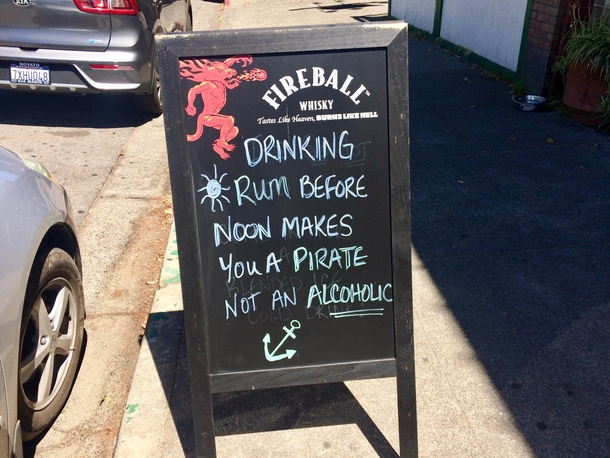 KIA
NOVATO
7XHU048
FIREBALL™
WHISKY
Tastes Like Heaven, BURNS LIKE HELL
DRINKING
RUM BEFORE
NOON MAKES
YOU A PIRATE
NOT AN ALCOHOLIC